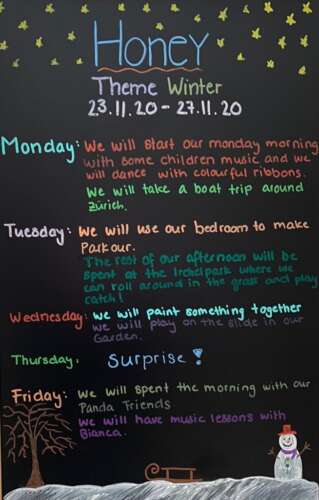 Honey
Theme Winter
23.11.20 - 27.11.20
Monday: We will start our monday morning
with some children music and we
will dance with colourful ribbons.
We will take a boat trip around
Zürich.
Tuesday: We will use our bedroom to make
Parkour.
The rest of our afternoon will be
spent at the Irchelpark where we
can roll around in the grass and play
catch!
Wednesday: we will paint something together
we will play on the slide in our
Garden.
Thursday: Surprise!
Friday: We will spent the morning with our
Panda Friends
We will have music lessons with
Bianca.